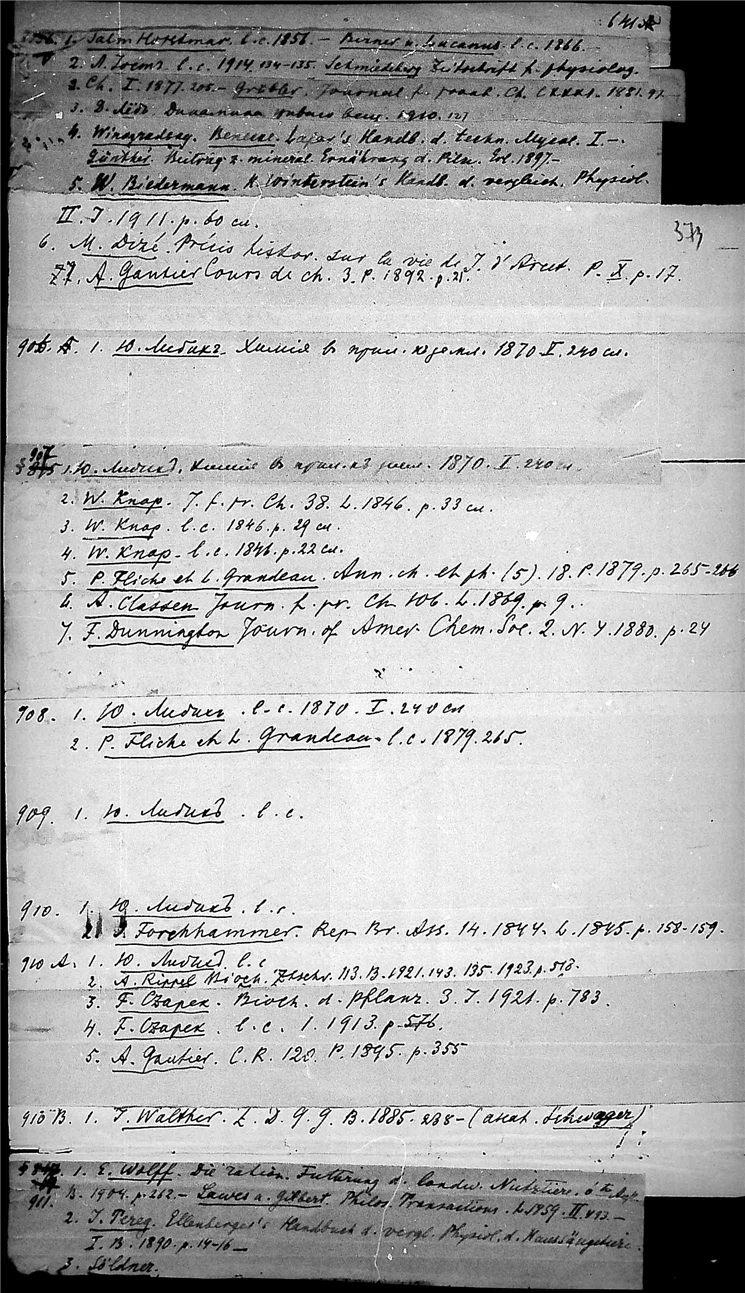 641
1. Salm Horstmar. l.c. 1856. – Berner u. Lucanus. l.c. 1866.
2. l.c. 1914. 134-135. Schmiedeberg Zeitschrift f. physiolog.
Ch. I. 1877. 205. – Journal f. prakt. Ch. 1881. 97
3. 1910. 127
4. Winogradsky. Benecke. Lafar's Handb. d. techn. Mycol. I –.
Günther. Beitrag z. mineral. Ernährung d. Pilz. Erl. 1897 –
5. W. Biedermann. H. Winterstein's Handb. d. vergleich. Physiol.
II. J. 1911. p. 60 сл.
373
6. M. Dizé. Précis histor. sur la vie de J. d'Arcet. P. X. p. 17.
7. A. Gautier Cours de ch. 3. P. 1892. p. 21.
906. 1. Ю. Либихъ. Химія в прил. к земл. 1870. I. 240 сл.
907 1. Ю. Либихъ. Химія в прил. къ земл. 1870. I. 240 сл.
2. W. Knap. J. f. pr. Ch. 38. L. 1846. p. 33 сл.
3. W. Knap. l.c. 1846. p. 29 сл.
4. W. Knap. l.c. 1846. p. 22 сл.
5. P. Fliche et L. Grandeau. Ann. ch. et ph. (5). 18. P. 1879. p. 265-266
6. A. Classen Journ. f. pr. Ch. 106. L. 1869. p. 9.
7. F. Dunnington Journ. of Amer. Chem. Soc. 2. N. Y. 1880. p. 24
908. 1. Ю. Либихъ. l.c. 1870. I. 240 сл
2. P. Fliche et L. Grandeau. l.c. 1879. 265.
909. 1. Ю. Либихъ. l.c.
910. 1. Ю. Либихъ. l.c.
2. J. Forchhammer. Rep. Br. Ass. 14. 1844. L. 1845. p. 158-159.
910 A. 1. Ю. Либихъ. l.c
2. A. Rippel Bioch. Ztschr. 113. B. 1921. 143. 135. 1923. p. 518.
3. F. Czapek. Bioch. d. Pflanz. 3. J. 1921. p. 783.
4. F. Czapek. l.c. 1. 1913. p. 576.
5. A. Gautier. C. R. 120. P. 1895. p. 355
910 B. 1. J. Walther. Z. D. g. G. B. 1885. 238 – (анал. Schwager)
1. E. Wolff. Die ration. Futterung d. landw. Nutztiere. 6
911. B. 1904. p. 262. – Lawes u. Gilbert. Philos. Transactions. L. 1859. II. 493. –
2. J. Tereg. Ellenberger's Handbuch d. vergl. Physiol. d. Haussäugetiere.
I. B. 1890. p. 14-16 –
3. Söldner.